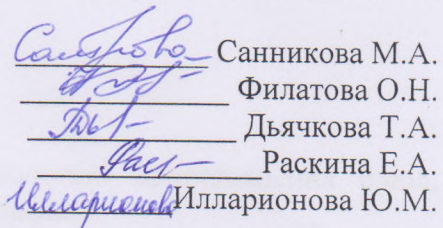 Санникова М.А.
Филатова О.Н.
Дьячкова Т.А.
Раскина Е.А.
Илларионова Илларионова Ю.М.